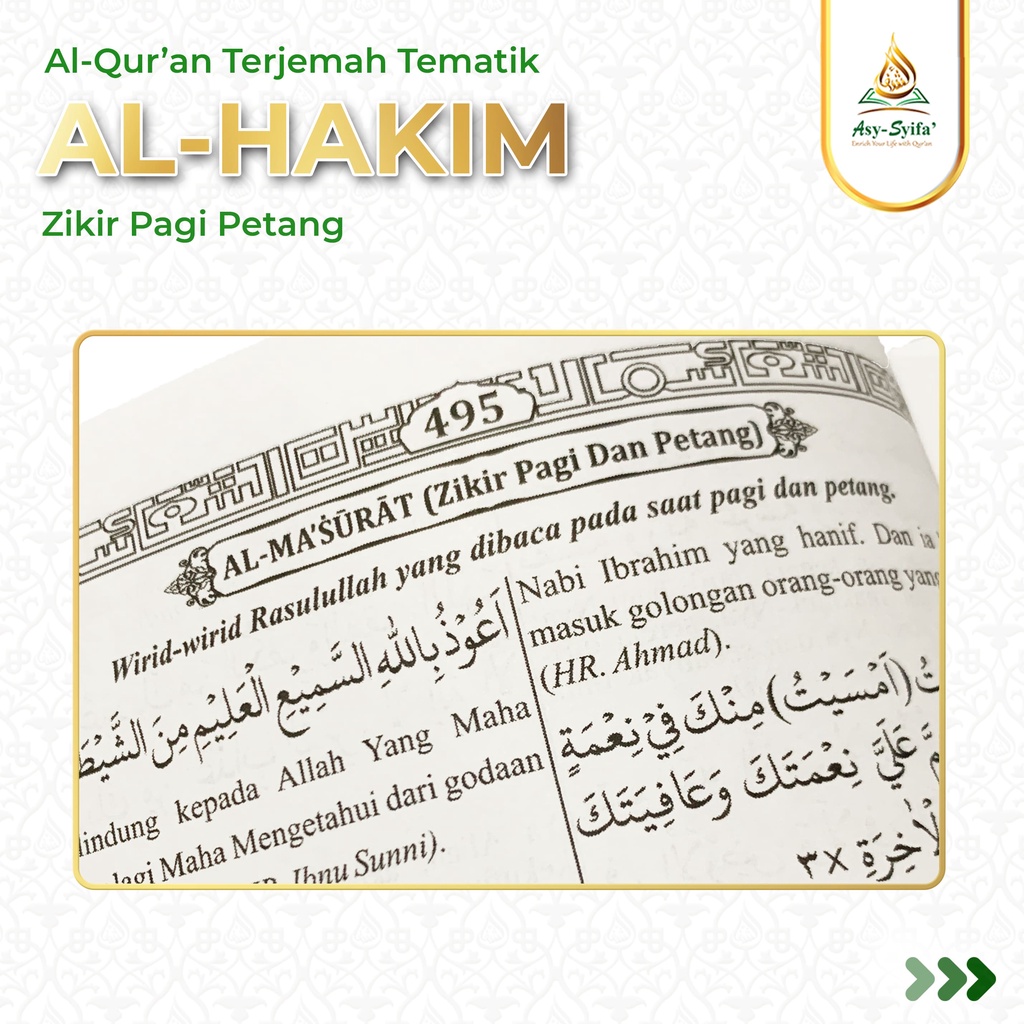 Al-Qur'an Terjemah Tematik
AL-HAKIM
Zikir Pagi Petang
Asy-Syifa'
Enrich Your Life with Qur'an
495
AL-MA'ṠŪRĀT (Zikir Pagi Dan Petang)
Wirid-wirid Rasulullah yang dibaca pada saat pagi dan petang.
اَعُوْذُ بِاللّٰهِ السَّمِيْعِ الْعَلِيْمِ مِنَ
kepada Allah Yang Maha
lagi Maha Mengetahui dari godaan
Ibnu Sunni).
Nabi Ibrahim yang hanif. Dan ia
masuk golongan orang-orang yang
(HR. Ahmad).
(اَمْسَيْتُ) مِنْكَ فِيْ نِعْمَةٍ
عَلَيَّ نِعْمَتَكَ وَعَافِيَتَكَ
٣ X